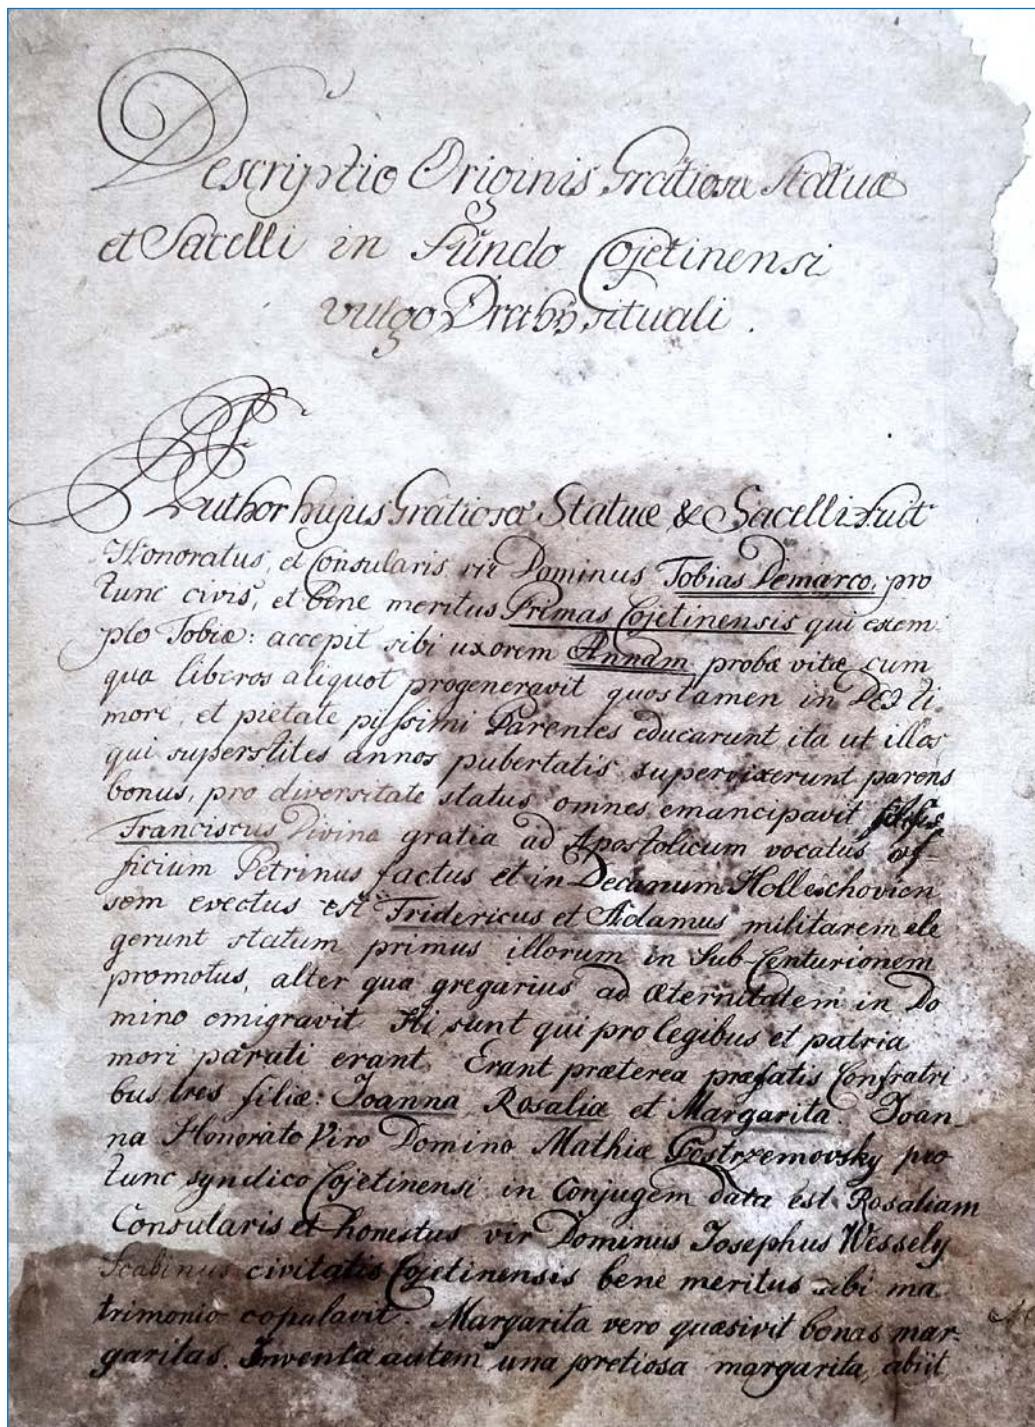 Descriptio Originis Gratiosæ Statuæ
et Sacelli in Fundo Cojetinensi
vulgo situali.
Author hujus Gratiosæ Statuæ & Sacelli fuit
Honoratus, et Consularis vir Dominus Tobias Demarco, pro
tunc civis, et bene meritus Primas Cojetinensis qui exem
plo Tobiæ: accepit sibi uxorem Annam probæ vitæ cum
qua liberos aliquot progeneravit quos tamen in DEI ti.
more, et pietate pyssimi Parentes educarunt ita ut illos
qui superstites annos pubertatis supervixerunt parens
bonus, pro diversitate status omnes emancipavit
Franciscus Divina gratia ad Apostolicum vocatus of-
ficium Petrinus factus et in Decanum Holleschovien
sem evectus est Fridericus et Adamus militarem ele
gerunt statum primus illorum in Sub-Centurionem
promotus, alter qua gregarius ad æternitatem in Do
mino emigravit Hi sunt qui pro legibus et patria
mori parati erant. Erant præterea præfatis Confratri
bus tres filiæ: Joanna, Rosalia et Margarita. Joan_
na Honorato Viro Domino Mathiæ Postrzemovsky pro
tunc syndico Cojetinensi in Conjugem data est Rosaliam
Consularis et honestus vir Dominus Josephus Wessely
Scabinus civitatis Cojetinensis bene meritus sibi ma
trimonio copulavit. Margarita vero quæsivit bonas mar-
garitas. Inventa autem una pretiosa margarita, abiit